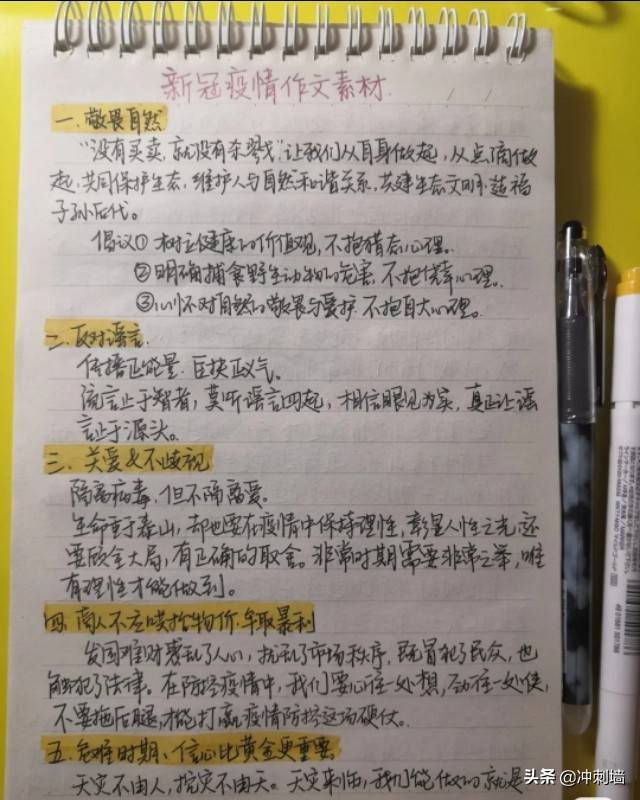 新冠疫情作文素材.
一.敬畏自然
"没有买卖,就没有杀戮",让我们从自身做起,从点滴做
起,共同保护生态,维护人与自然和谐关系,共建生态文明,造福
子孙后代。
倡议① 树立健康的价值观,不抱猎奇心理.
②明确捕食野生动物的危害,不抱侥幸心理.
③心怀对自然的敬畏与爱护,不抱自大心理。
二.反对谣言
传播正能量,匡扶正气。
流言止于智者,莫听谣言四起,相信眼见为实,真正让谣
言止于源头。
三.关爱&不歧视
隔离病毒,但不隔离爱。
生命重于泰山,却也要在疫情中保持理性,彰显人性之光,还
要顾全大局,有正确的取舍。非常时期需要非常之举,唯
有理性才能做到。
四.商人不应哄抬物价,牟取暴利
发国难财袭乱了人心,扰乱了市场秩序,既冒犯了民众,也
触犯了法律。在防控疫情中,我们要心往一处想,劲往一处使,
不要拖后腿,才能打赢疫情防控这场硬仗。
五.危难时期、信心比黄金更重要。
天灾不由人,抗灾不由天。天灾来临,我们能做的就是
头条 @冲刺墙